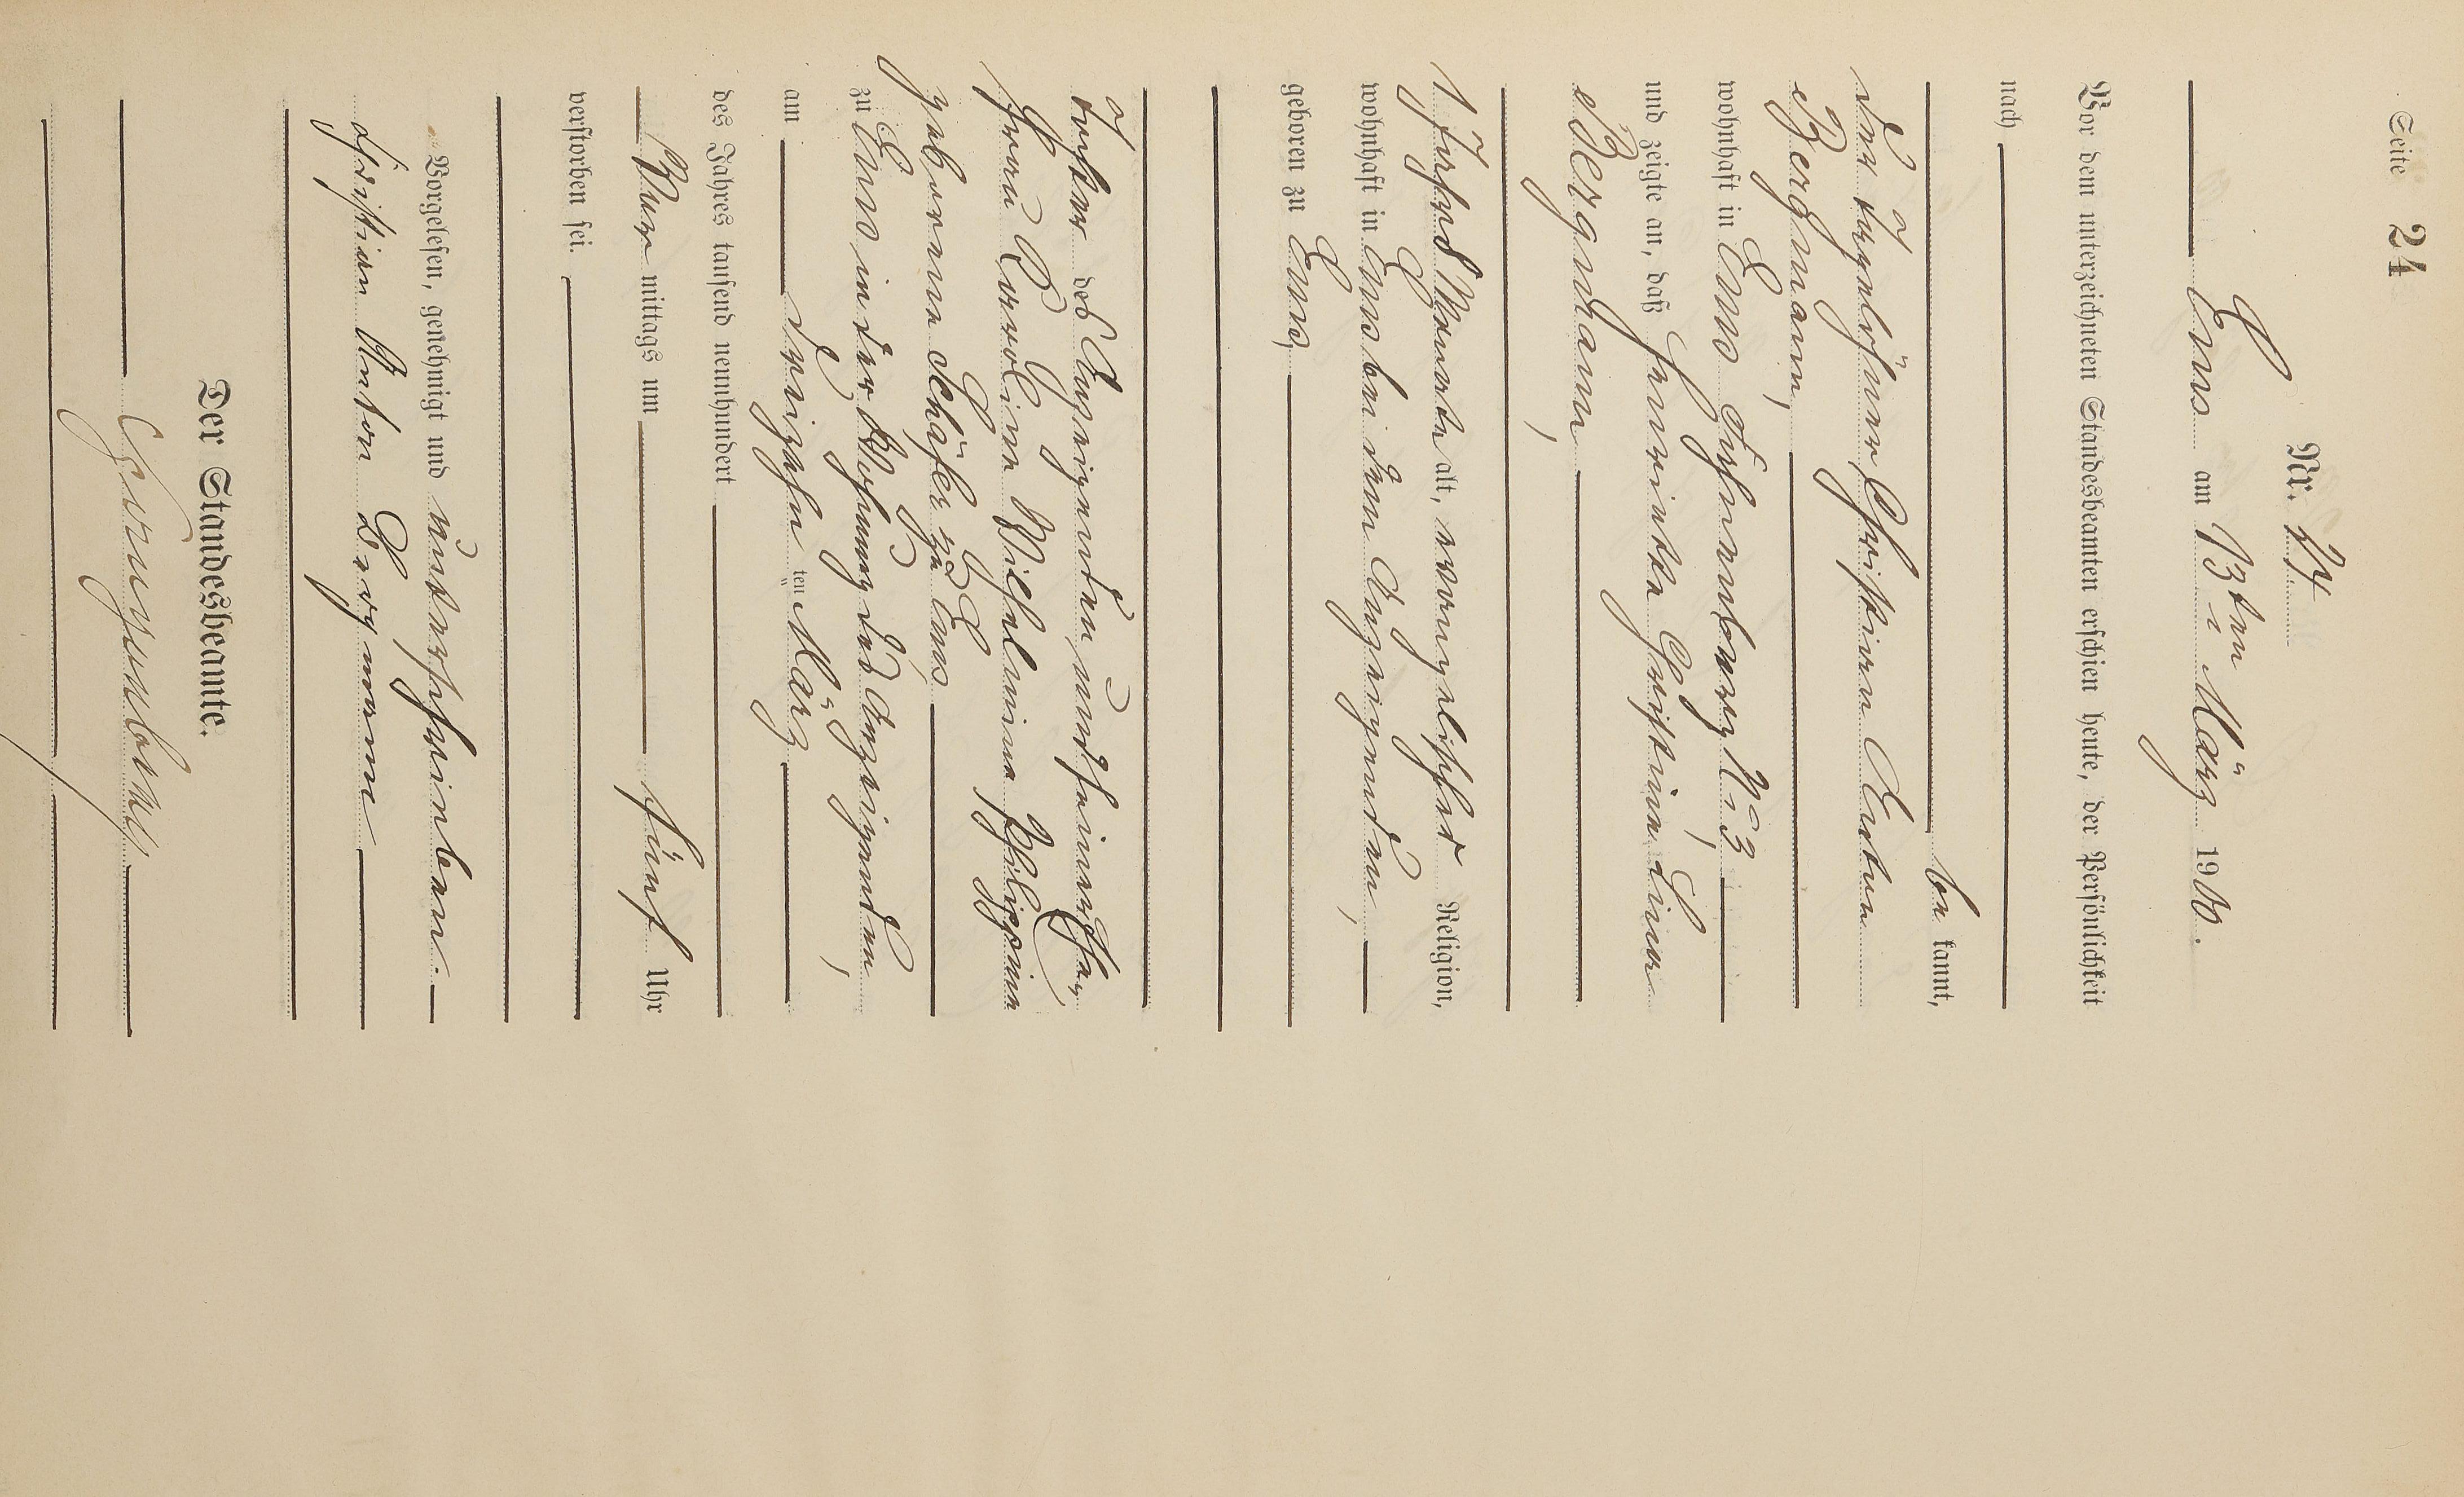 Seite 24
Nr. 24
Ems am 13ten März 1900.
Vor dem unterzeichneten Standesbeamten erschien heute, der Persönlichkeit
nach
be kannt,
der Tagelöhner Christian Anton
Bergmann,
wohnhaft in Ems No 3
und zeigte an, daß Henriette Christiane Lina
Bergmann,
1 Jahr Monate alt, evangelischer Religion,
wohnhaft in Ems bei dem Anzeigenden,
geboren zu Ems,
Tochter des Anzeigenden und seiner Ehe
Frau Karoline Wilhelmine Philippine
geborene Schäfer zu Ems
zu Ems in der Wohnung des Anzeigenden,
am dreizehn ten März
des Jahres tausend neunhundert
Vor mittags um fünf Uhr
verstorben sei.
Vorgelesen, genehmigt und unterschrieben.
Christian Anton Bergmann
Der Standesbeamte.